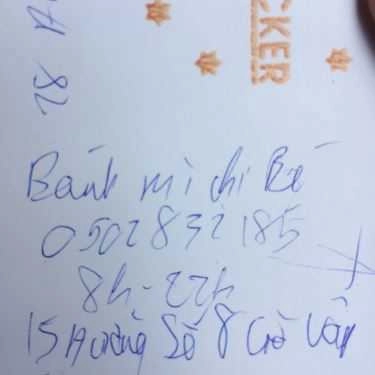 CKER
82
Bánh mì chị Bé
0502832185
8h-22h
15 Đường Số 8 Gò Vấp